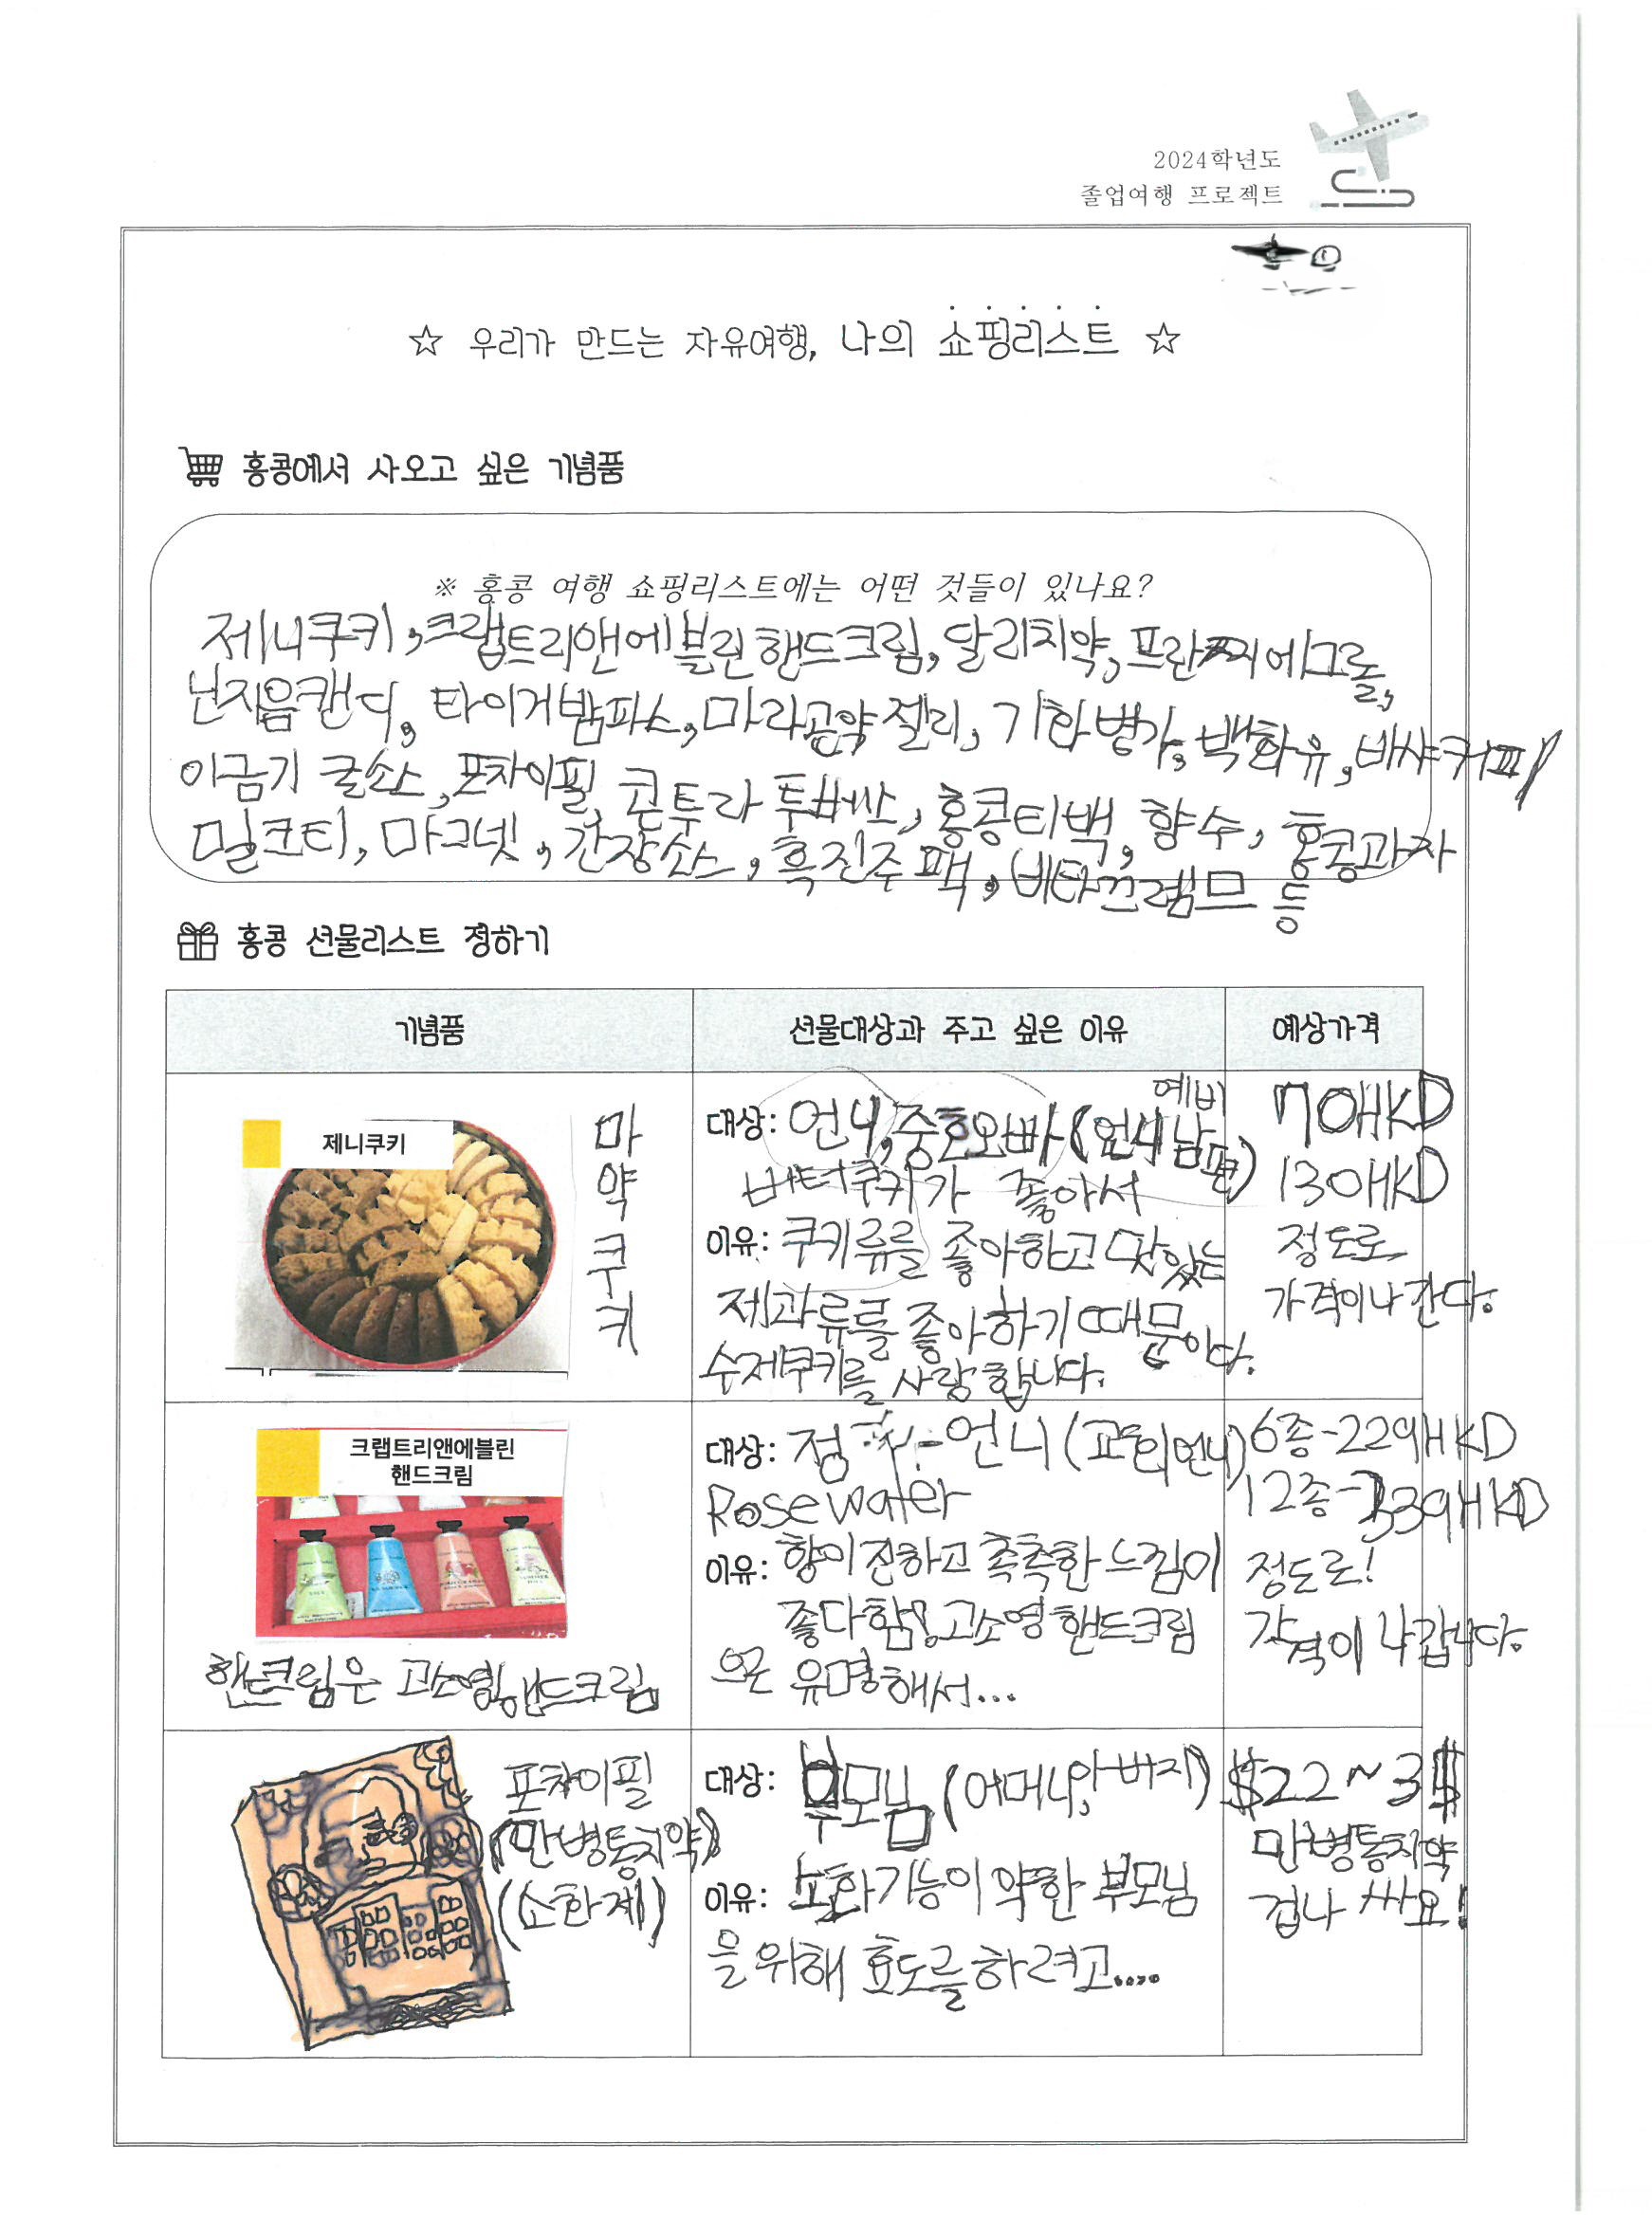 2024학년도
졸업여행 프로젝트
☆ 우리가 만드는 자유여행, 나의 쇼핑리스트 ☆
홍콩에서 사오고 싶은 기념품
※ 홍콩 여행 쇼핑리스트에는 어떤 것들이 있나요?
제니쿠키, 크랩트리앤에블린 핸드크림, 달리치약, 프란찌에그롤,
닌지음캔디, 타이거밤파스, 마라공약젤리, 기화병가, 백화유, 바샤커피/
이금기 굴소스, 포차이필, 콘투라 투베스, 홍콩티백, 향수, 홍콩과자
밀크티, 마그넷, 간장소스, 흑진주팩, 비타끄렘므 등
홍콩 선물리스트 정하기
기념품 선물대상과 주고 싶은 이유 예상가격
제니쿠키
마약쿠키
대상: 언니, 중호오빠 (언니 예비 남편)
버터쿠키가 좋아서
이유: 쿠키류를 좋아하고 맛있는
제과류를 좋아하기 때문이다.
수제쿠키를 사랑합니다.
70HKD
130HKD
정도로
가격이 나간다.
크랩트리앤에블린
핸드크림
핸드크림은 고소영핸드크림
대상: 정 언니 (언니)
Rosewater
이유: 향이 진하고 촉촉한 느낌이
좋다함! 고소영 핸드크림
으로 유명해서...
6종-229HKD
12종-339HKD
정도로!
가격이 나갑니다.
포차이필
(만병통치약)
(소화제)
대상: 부모님 (어머니, 아버지)
이유: 소화기능이 약한 부모님
을 위해 효도를 하려고....
$22~3$
만병통치약
겁나 싸요!